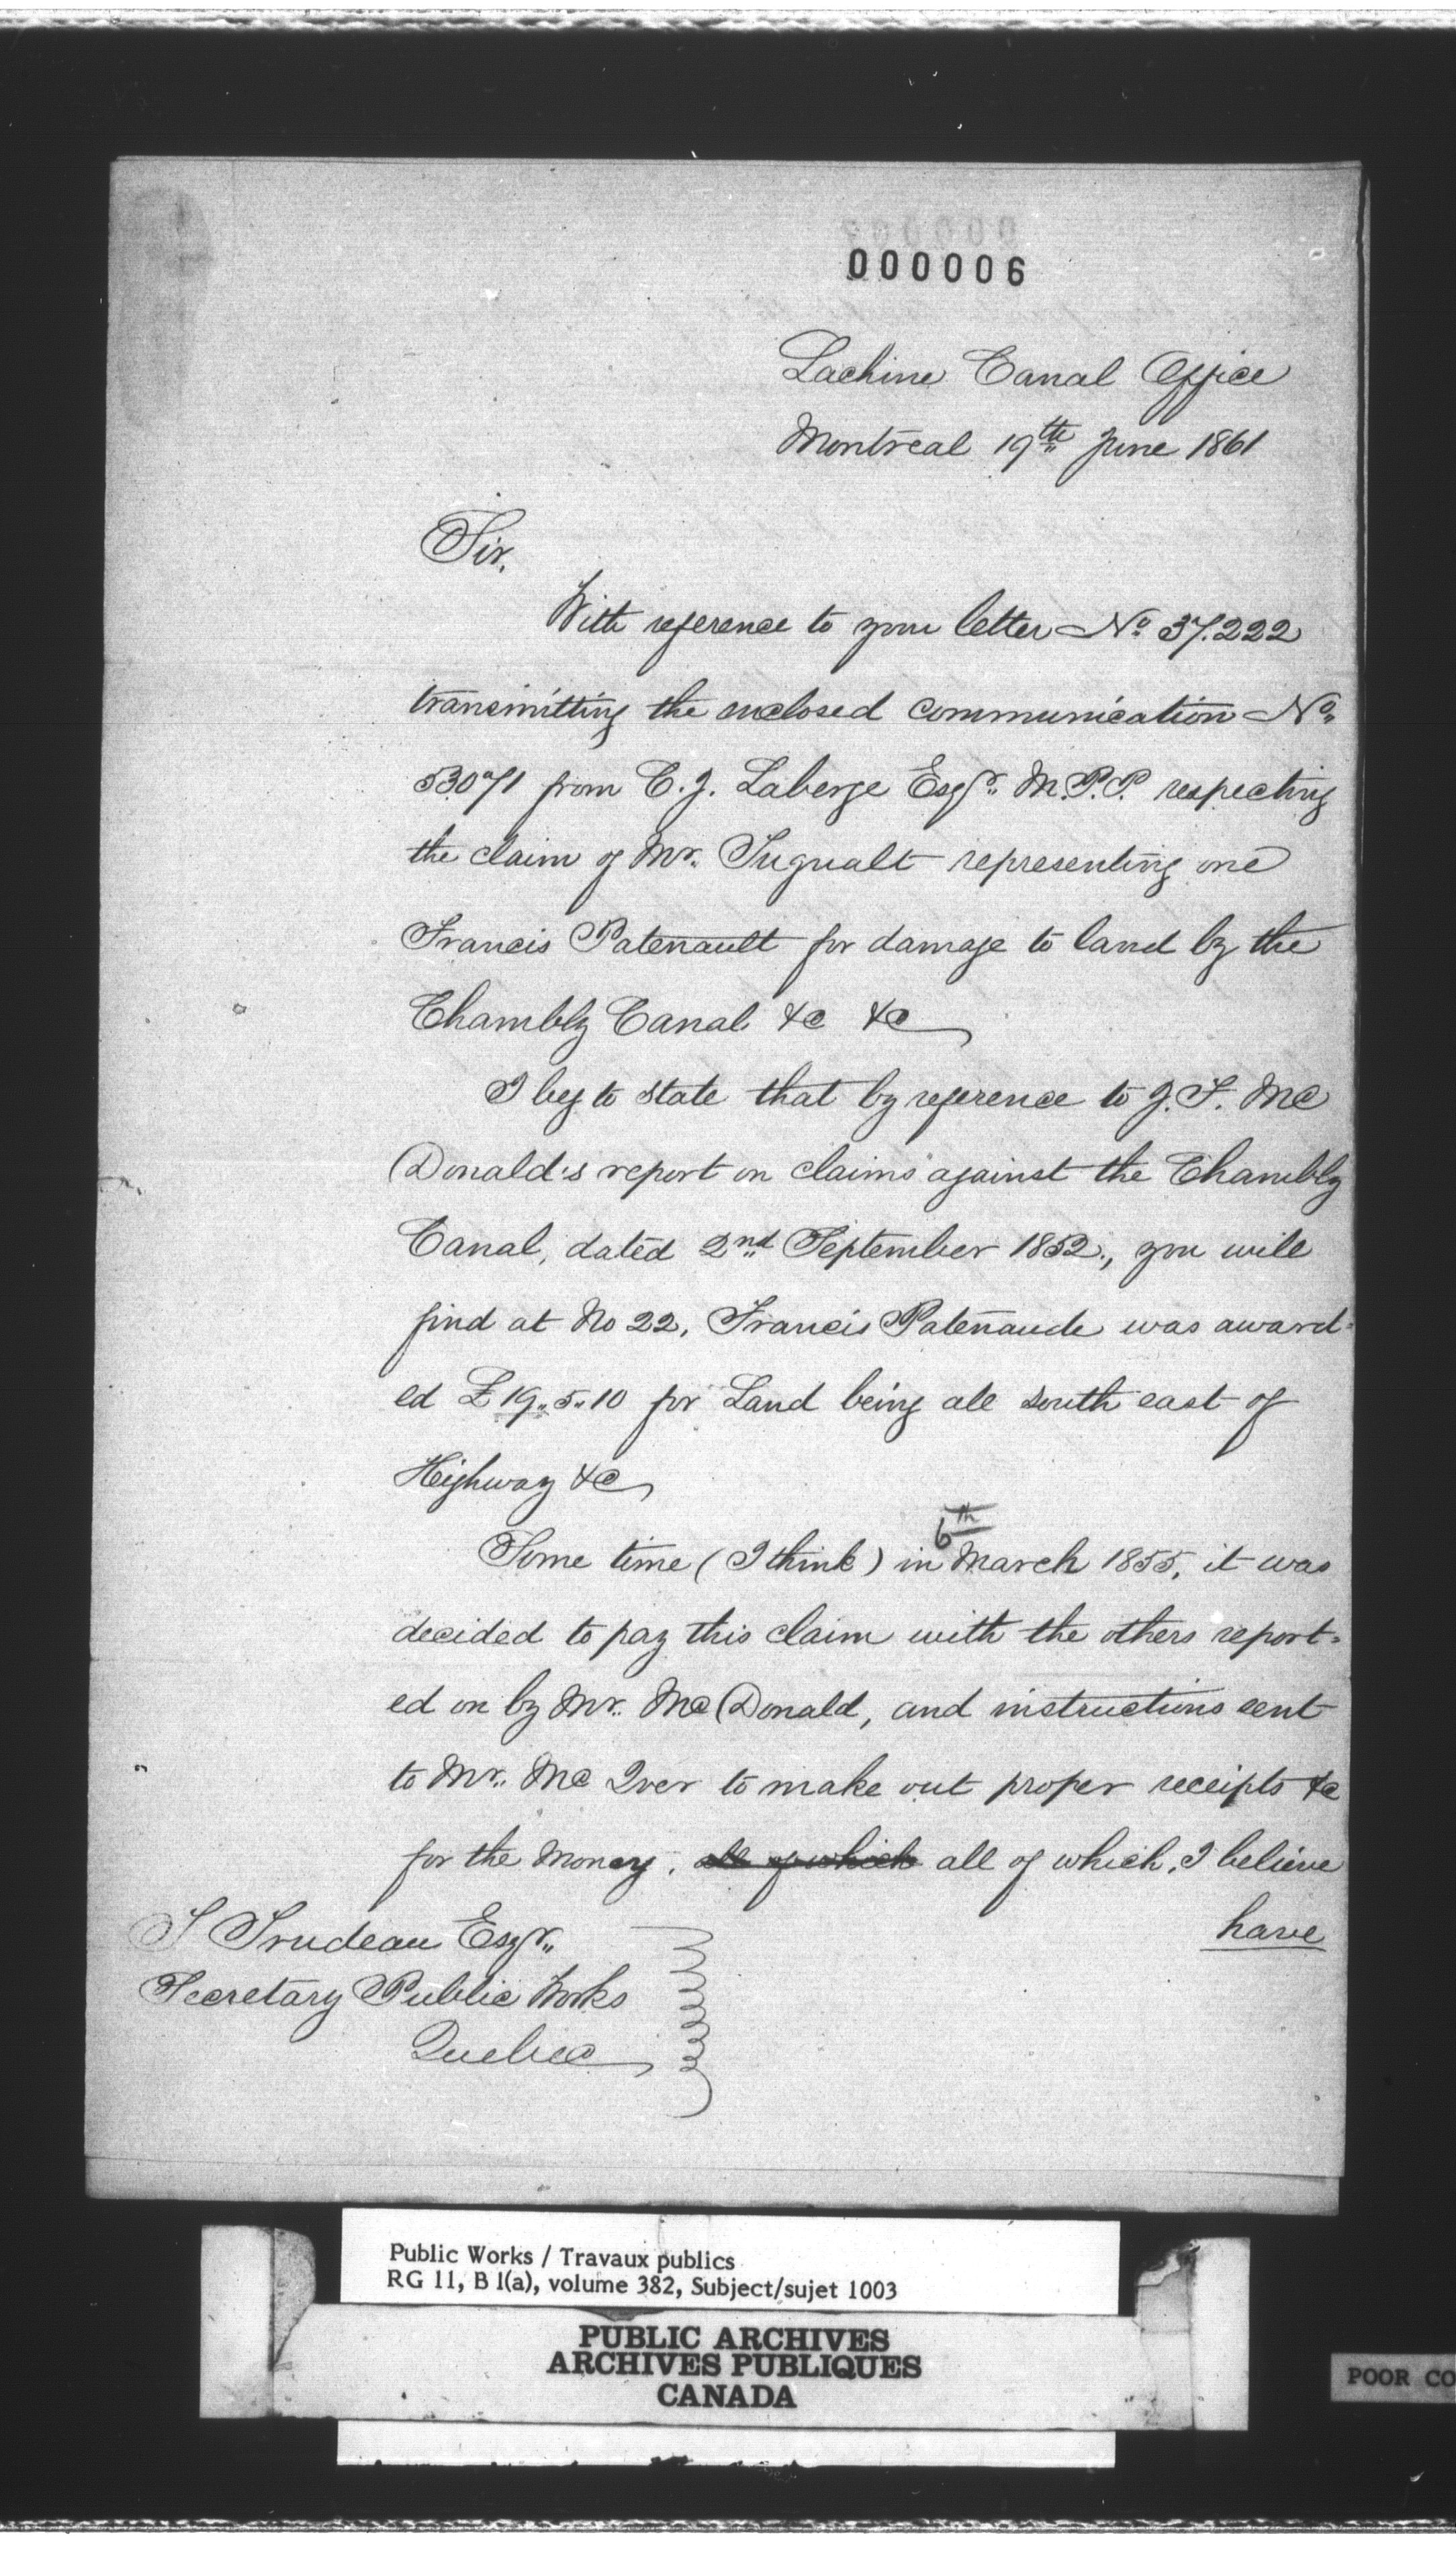 000006
Lachine Canal Office
Montreal 19th June 1861
Sir,
With reference to your letter No 37.222
transmitting the enclosed communication No.
53071 from C. J. Laberge Esqr. M.P.P. respecting
the claim of Mr. representing one
Francis Patenault for damage to land by the
Chambly Canal &c &c
I beg to state that by reference to J. F. Mc
Donald's report on claims against the Chambly
Canal, dated 2nd September 1852., you will
find at No 22, Francis Patenaude was award=
ed £19..5..10 for Land being all south east of
Highway &c
6th
Some time (I think) in March 1855, it was
decided to pay this claim with the others report=
ed on by Mr. McDonald, and instructions sent
to Mr. Mc Iver to make out proper receipts &c
for the Money, all of which all of which, I believe
have
Trudeau Esqr.
Secretary Public Works
Quebec
Public Works / Travaux publics
RG 11, B 1(a), volume 382, Subject/sujet 1003
PUBLIC ARCHIVES
ARCHIVES PUBLIQUES
CANADA
POOR CO